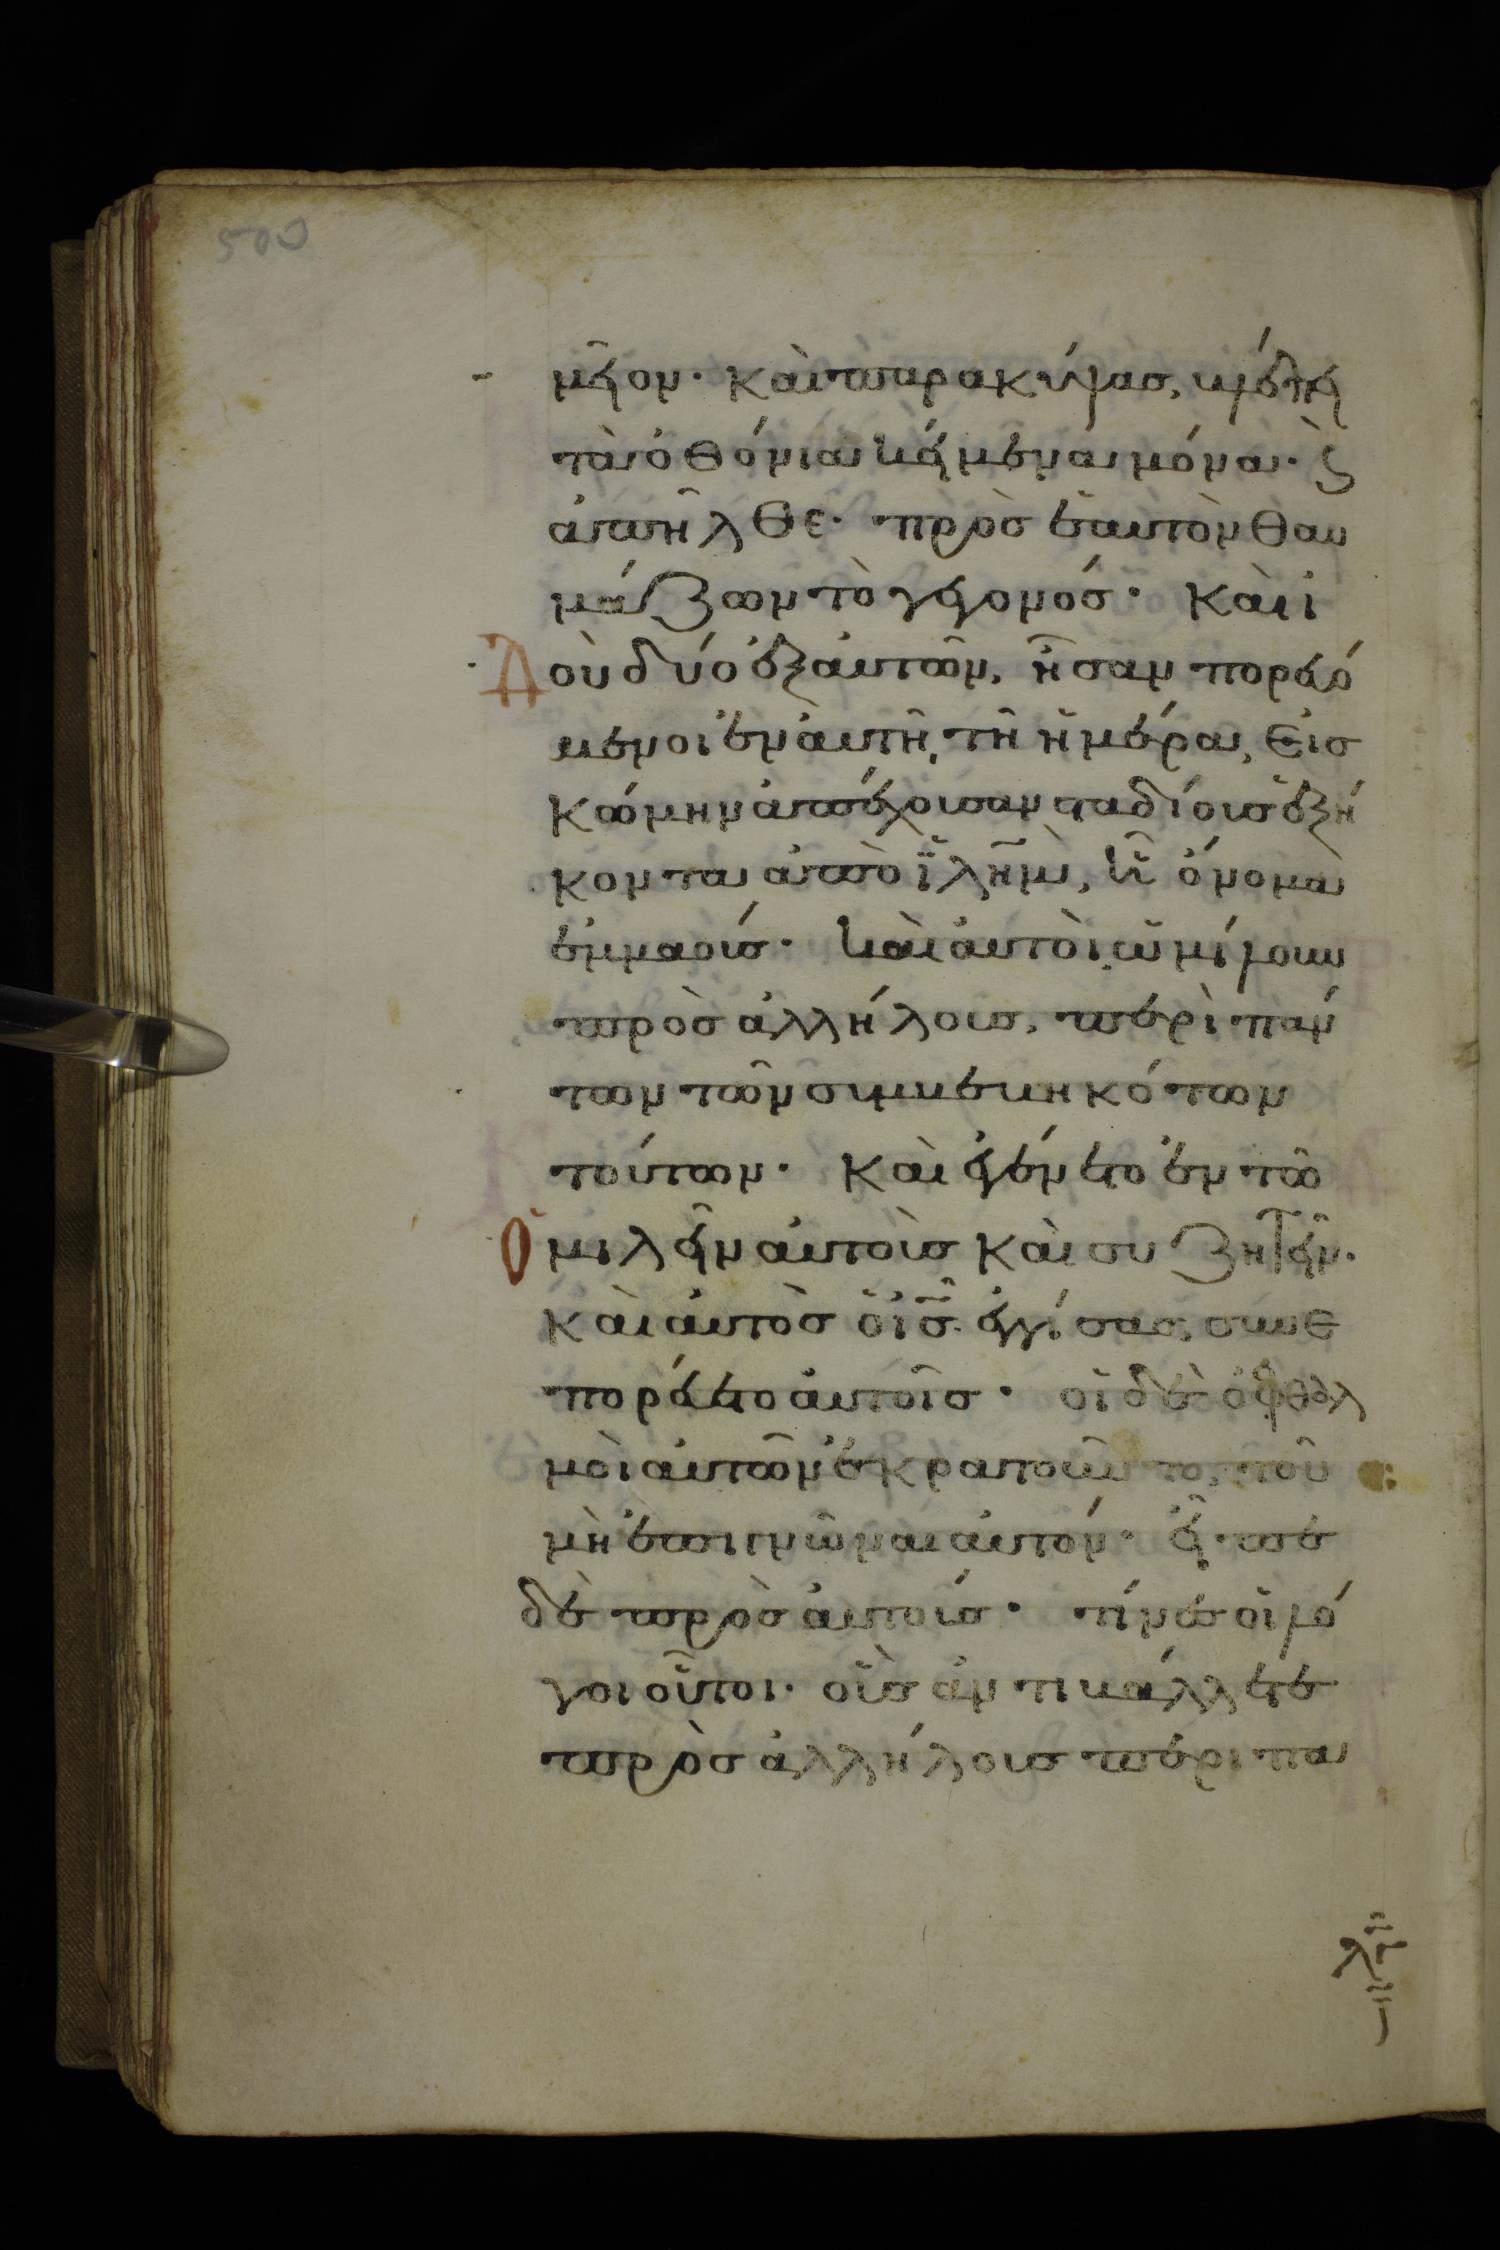 500
μεῖον· καὶ παρακύψας, βλέπει
τὰ ὀθόνια κείμενα μόνα· καὶ
ἀπῆλθε· πρὸς ἑαυτὸν θαυ
μάζων τὸ γεγονός· Καὶ ἰ
Δοὺ δύο ἐξ αὐτῶν, ἦσαν πορευό
μενοι ἐν αὐτῇ, τῇ ἡμέρα, εἰς
κώμην ἀπέχουσαν σταδίους ἑξή
κοντα ἀπὸ ϊλημ, ἧ ὄνομα
ἐμμαούς· καὶ αὐτοὶ ὡμίλουν
πρὸς ἀλλήλους, περὶ πάν
των τῶν συμβεβηκότων
τούτων· Καὶ ἐγένετο ἐν τῶ
Ὁμιλεῖν αὐτοὺς καὶ συζητεῖν·
καὶ αὐτὸς ὁ ις ἐγγίσας, συνε
πορεύετο αὐτοῖς· οἱ δὲ ὀφθαλ
μοὶ αὐτῶν ἐκρατοῦντο, τοῦ
μὴ ἐπιγνῶναι αὐτόν· εἶπε
δὲ πρὸς αὐτούς· τίνες οἱ λό
γοι οὗτοι· οὓς ἀντιβάλλετε
πρὸς ἀλλήλους περιπα